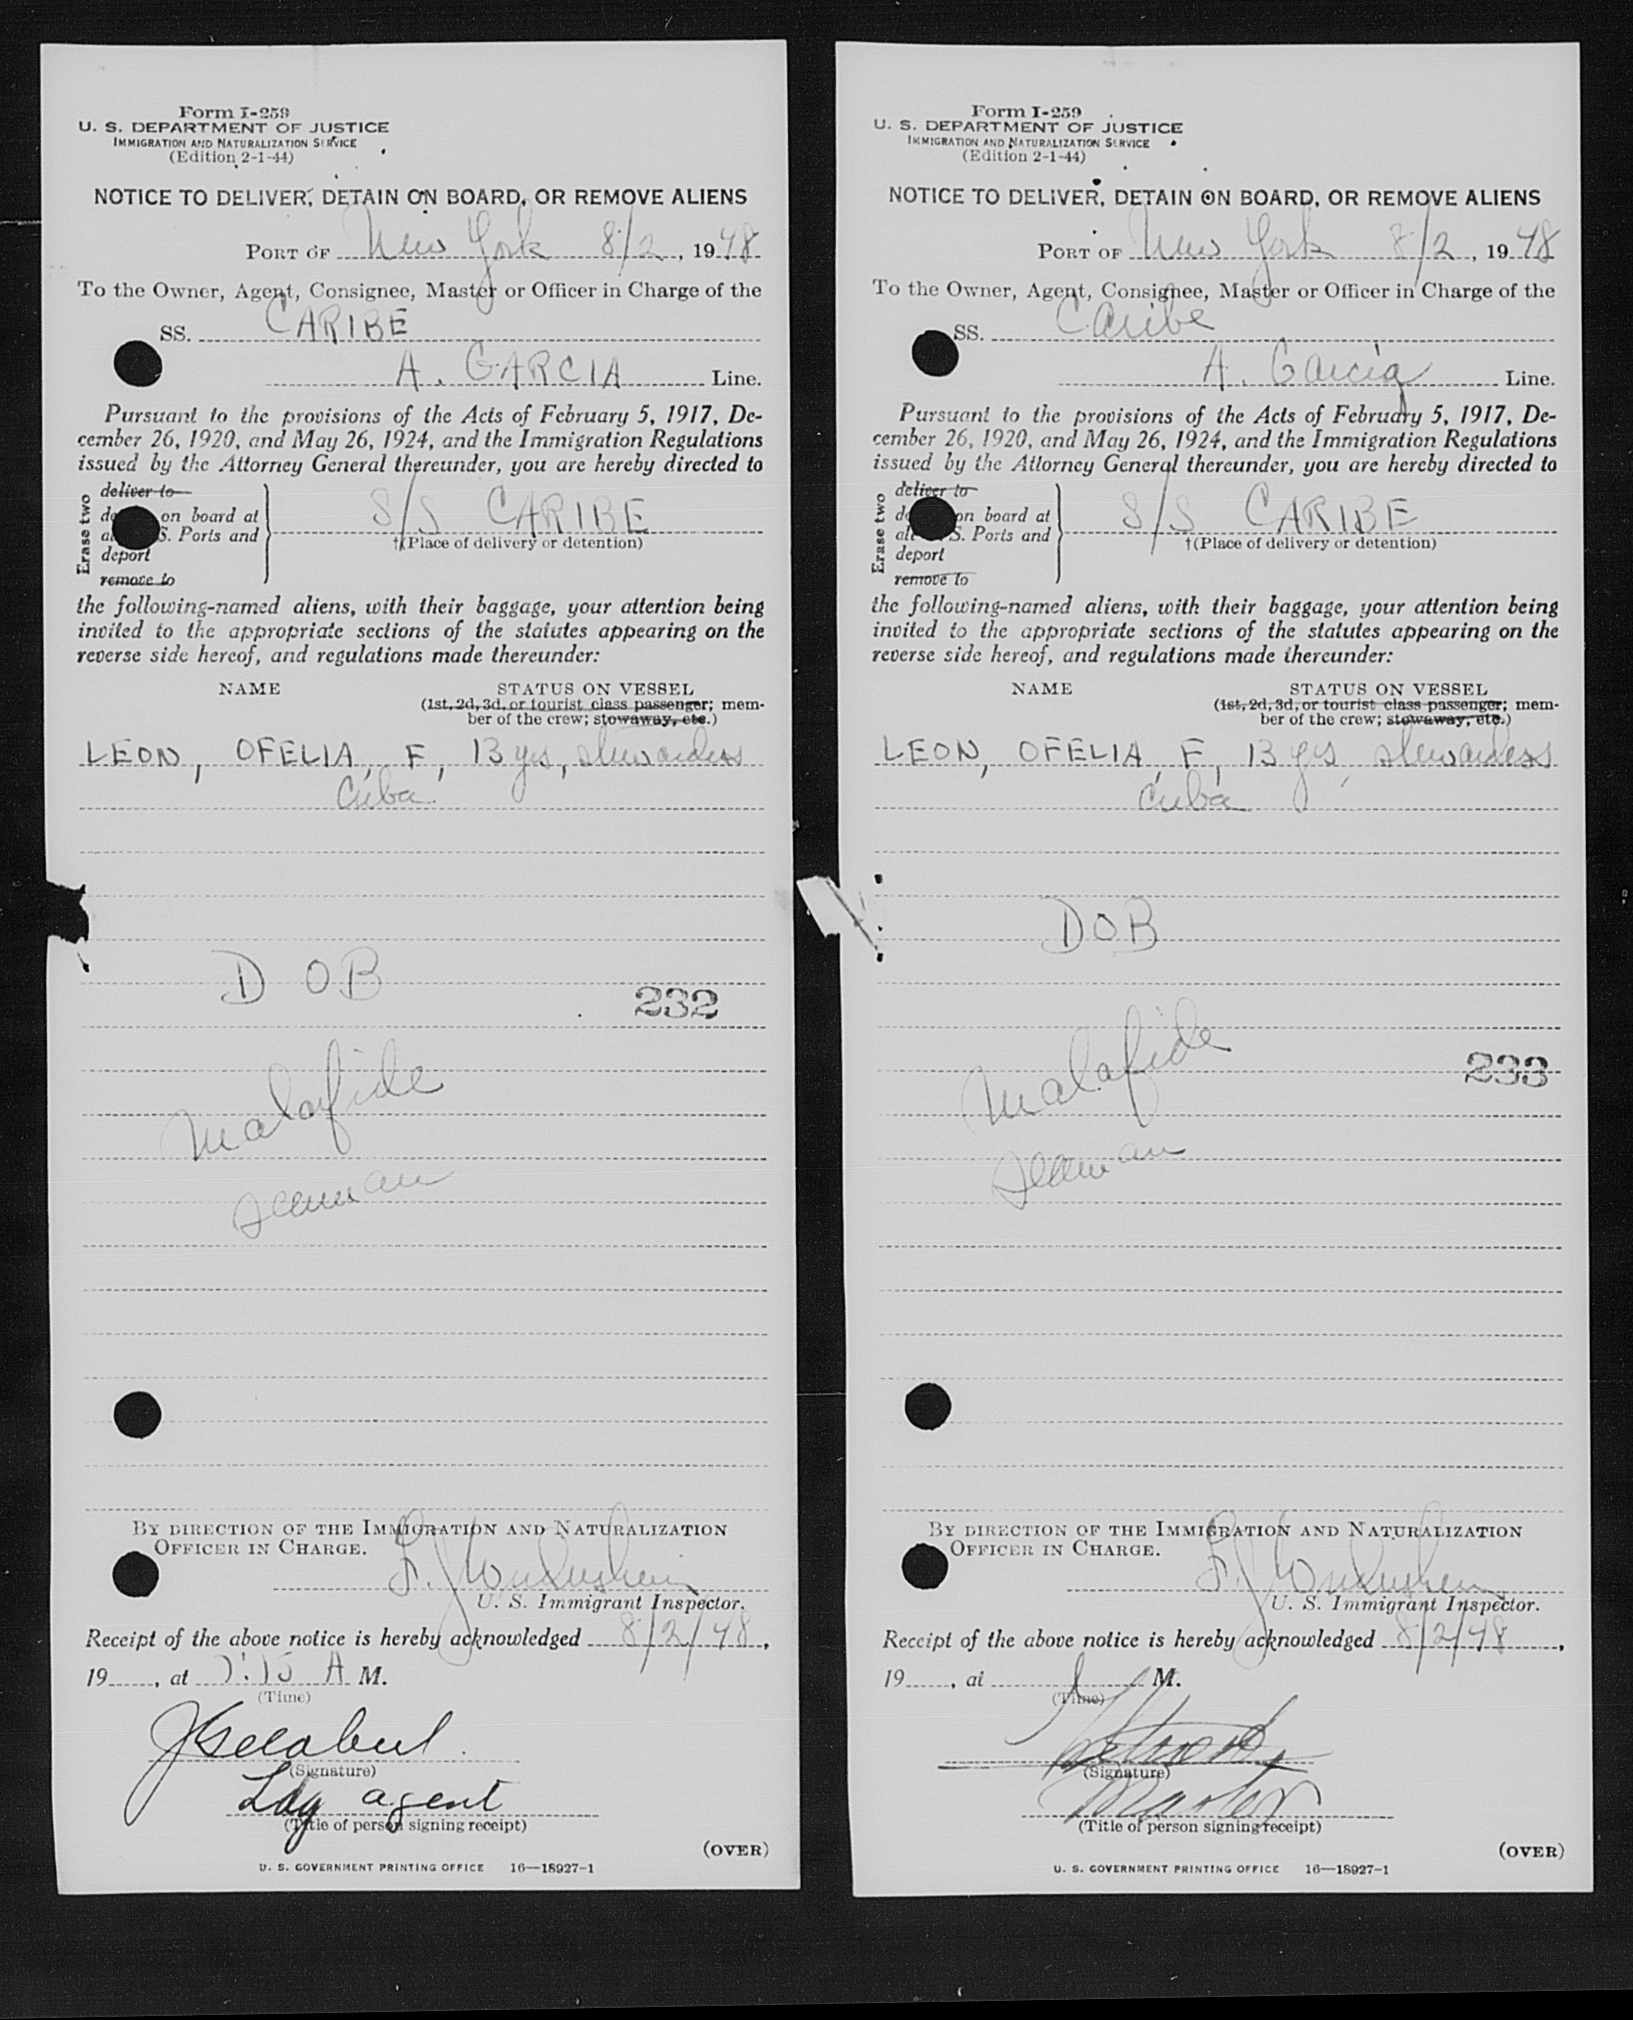 Form I-259
U. S. DEPARTMENT OF JUSTICE
IMMIGRATION AND NATURALIZATION SERVICE
(Edition 2-1-44)
NOTICE TO DELIVER, DETAIN ON BOARD, OR REMOVE ALIENS
PORT OF New York 8/2, 1948
To the Owner, Agent, Consignee, Master or Officer in Charge of the
SS. CARIBE
A. GARCIA Line.
Pursuant to the provisions of the Acts of February 5, 1917, De-
cember 26, 1920, and May 26, 1924, and the Immigration Regulations
issued by the Attorney General thereunder, you are hereby directed to
Erase two
deliver to
on board at
S. Ports and
deport
remove to
S/S CARIBE
†(Place of delivery or detention)
the following-named aliens, with their baggage, your attention being
invited to the appropriate sections of the statutes appearing on the
reverse side hereof, and regulations made thereunder:
NAME STATUS ON VESSEL
(1st, 2d, 3d, or tourist class passenger; mem-
ber of the crew; stowaway, etc.)
LEON, OFELIA, F, 13 yrs, stewardess
Cuba
D OB
232
Malafide
seaman
BY DIRECTION OF THE IMMIGRATION AND NATURALIZATION
OFFICER IN CHARGE.
U. S. Immigrant Inspector.
Receipt of the above notice is hereby acknowledged 8/2/48,
19, at :15 A M.
(Time)
(Signature)
agent
(Title of person signing receipt)
(OVER)
U. S. GOVERNMENT PRINTING OFFICE 16—18927-1
Form I-259
U. S. DEPARTMENT OF JUSTICE
IMMIGRATION AND NATURALIZATION SERVICE
(Edition 2-1-44)
NOTICE TO DELIVER, DETAIN ON BOARD, OR REMOVE ALIENS
PORT OF New York 8/2, 1948
To the Owner, Agent, Consignee, Master or Officer in Charge of the
SS. Caribe
A. Garcia Line.
Pursuant to the provisions of the Acts of February 5, 1917, De-
cember 26, 1920, and May 26, 1924, and the Immigration Regulations
issued by the Attorney General thereunder, you are hereby directed to
Erase two
deliver to
on board at
S. Ports and
deport
remove to
S/S CARIBE
†(Place of delivery or detention)
the following-named aliens, with their baggage, your attention being
invited to the appropriate sections of the statutes appearing on the
reverse side hereof, and regulations made thereunder:
NAME STATUS ON VESSEL
(1st, 2d, 3d, or tourist class passenger; mem-
ber of the crew; stowaway, etc.)
LEON, OFELIA, F, 13 yrs, stewardess
Cuba
DOB
Malafide
233
Seaman
BY DIRECTION OF THE IMMIGRATION AND NATURALIZATION
OFFICER IN CHARGE.
U. S. Immigrant Inspector.
Receipt of the above notice is hereby acknowledged 8/2/48,
19, at M.
(Time)
(Signature)
Master
(Title of person signing receipt)
(OVER)
U. S. GOVERNMENT PRINTING OFFICE 16—18927-1